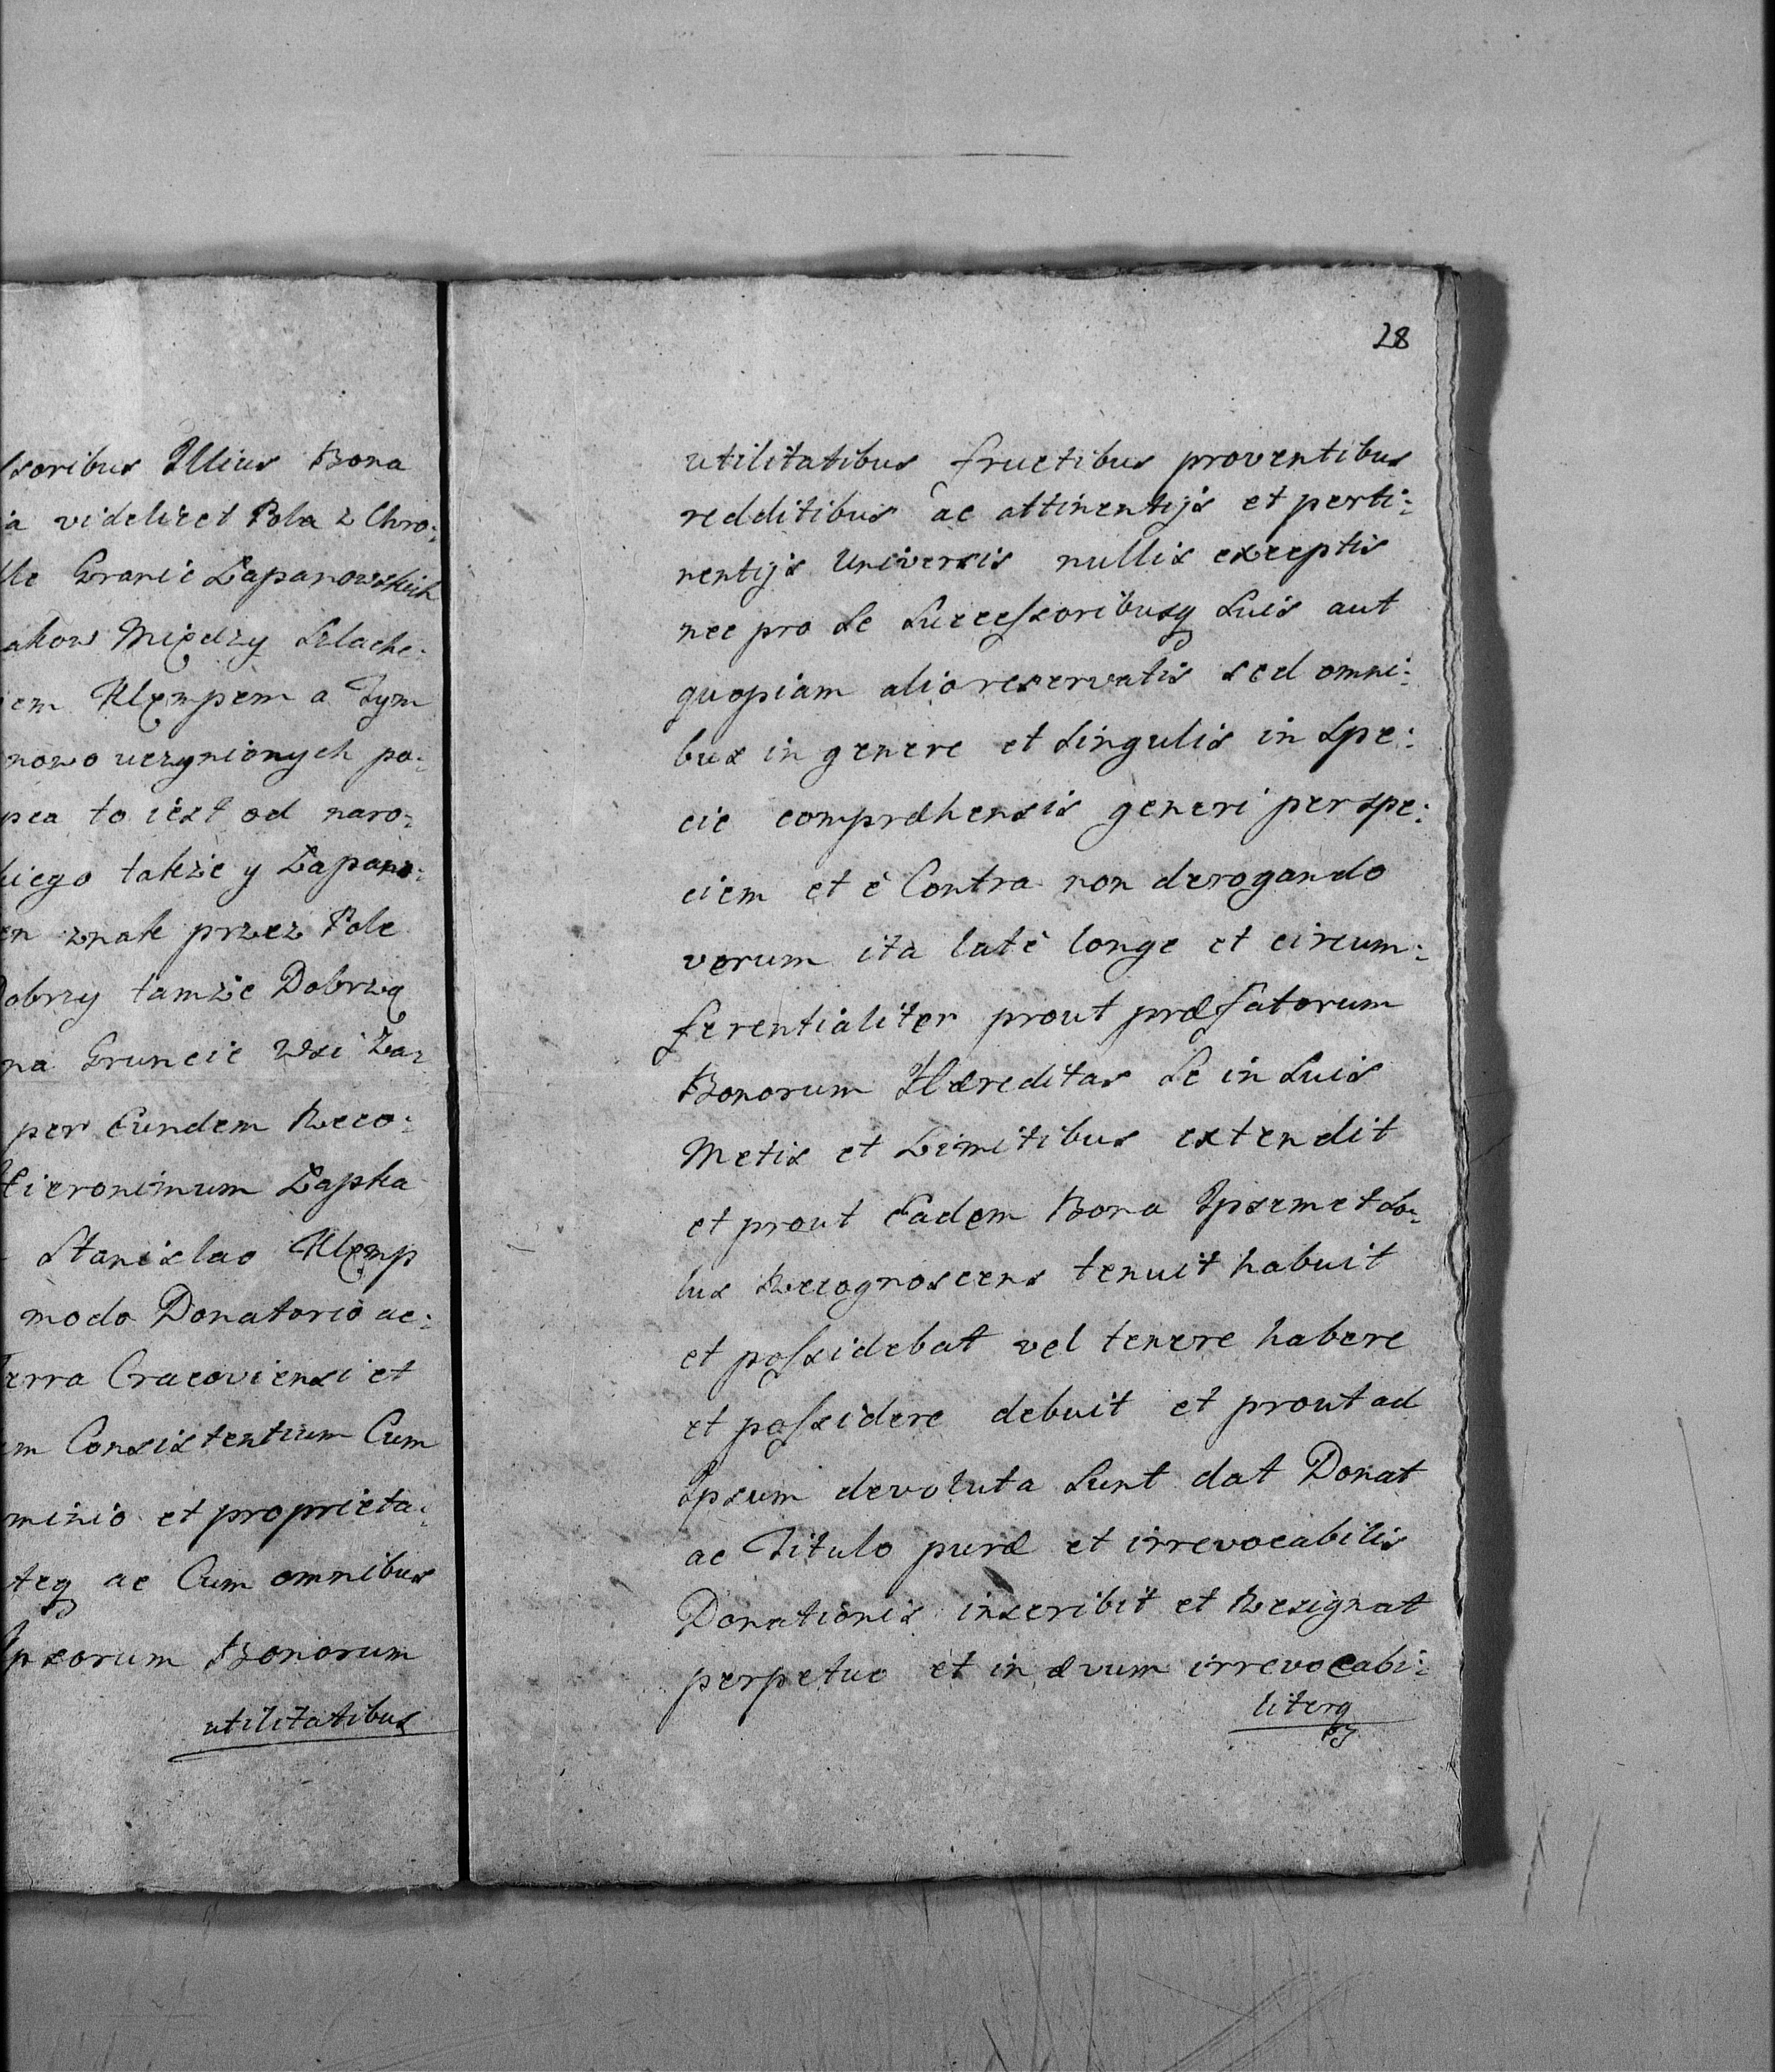 ſsoribus Illius Bona
ia videlicet Pola z Chro:
lle Granic Łapanowskich
akow Między Szlache:
iem Klempem a Tym
nowo uczynionych po:
pca to iest od naro:
kiego takze y Łapano:
en znak przez Pole
Dobrzy tamże Dobrzą
na Gruncie Wsi Ła:
per Eundem Reco:
Hieronimum Łapka
Stanislao Klemp
modo Donatorio ac:
Terra Cracoviensi et
em Consistentium Cum
minio et proprieta:
teq ac Cum omnibus
Ipsorum Bonorum
utilitatibus
28
utilitatibus fructibus proventibus
redditibus ac attinentijs et perti:
nentijs Universis nullis exceptis
nec pro Se Succeſsoribusq Suis aut
quopiam alio reservatis sed omni:
bus in genere et Singulis in Spe:
cie compræhensis generi per spe:
ciem et è Contra non derogando
verum ita latè longe et circum:
ferentialiter prout præfatorum
Bonorum Hæreditas Se in Suis
Metis et Limitibus extendit
et prout Eadem Bona Ipsemet So:
lus Recognoscens tenuit habuit
et poſsidebat vel tenere habere
et poſsidere debuit et prout ad
Ipsum devoluta Sunt dat Donat
ac Titulo puræ et irrevocabilis
Donationis inscribit et Resignat
perpetuo et in ævum irrevocabi:
literq